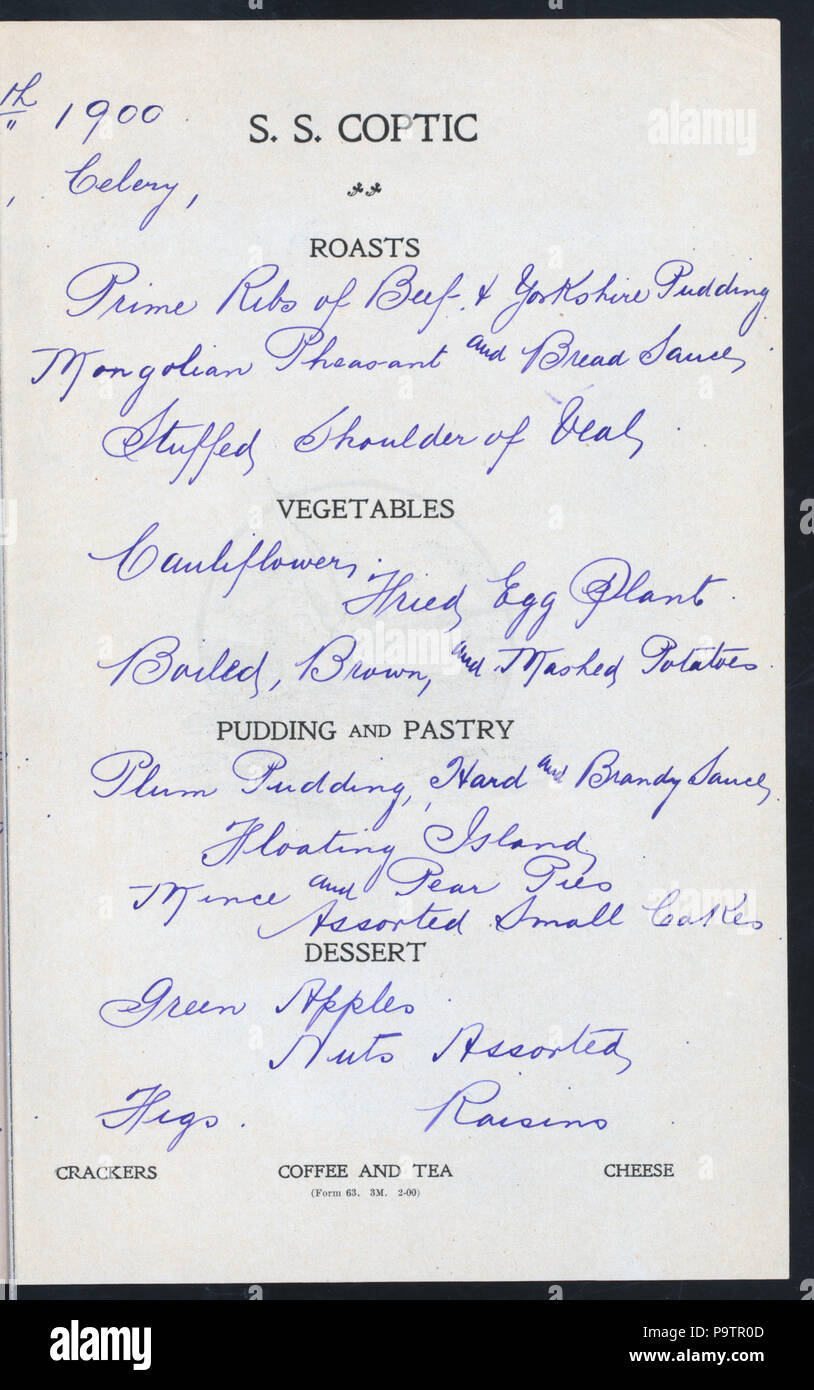 th 1900
S. S. COPTIC
, Celery,
ROASTS
Prime Ribs of Beef. & Yorkshire Pudding
Mongolian Pheasant and Bread Sauce,
Stuffed Shoulder of Veal,
VEGETABLES
Cauliflower,
Fried Egg Plant.
Boiled, Brown, and Mashed Potatoes.
PUDDING AND PASTRY
Plum Pudding, Hard and Brandy Sauce,
Floating Island,
Mince and Pear Pies
Assorted Small Cakes
DESSERT
Green Apples.
Nuts Assorted,
Figs. Raisins
CRACKERS COFFEE AND TEA CHEESE
(Form 63. 3M. 2-00)
alamy
alamy
alamy
alamy
Image ID: P9TR0D
www.alamy.com